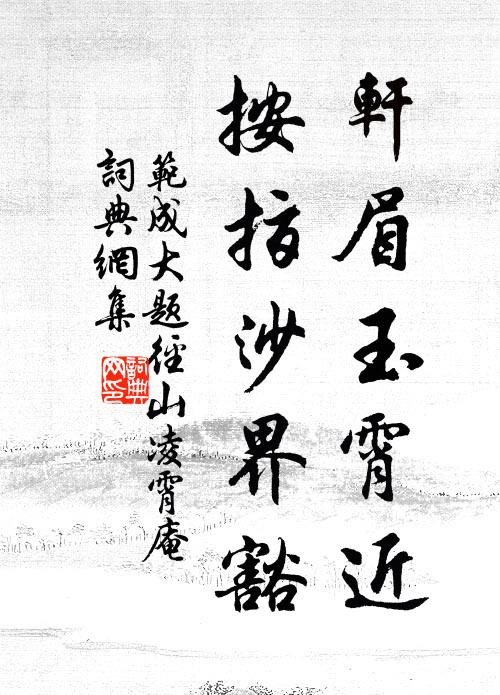 軒眉玉霄近
按指沙界豁
範成大题徑山凌霄庵
詞典網集
詞典网印